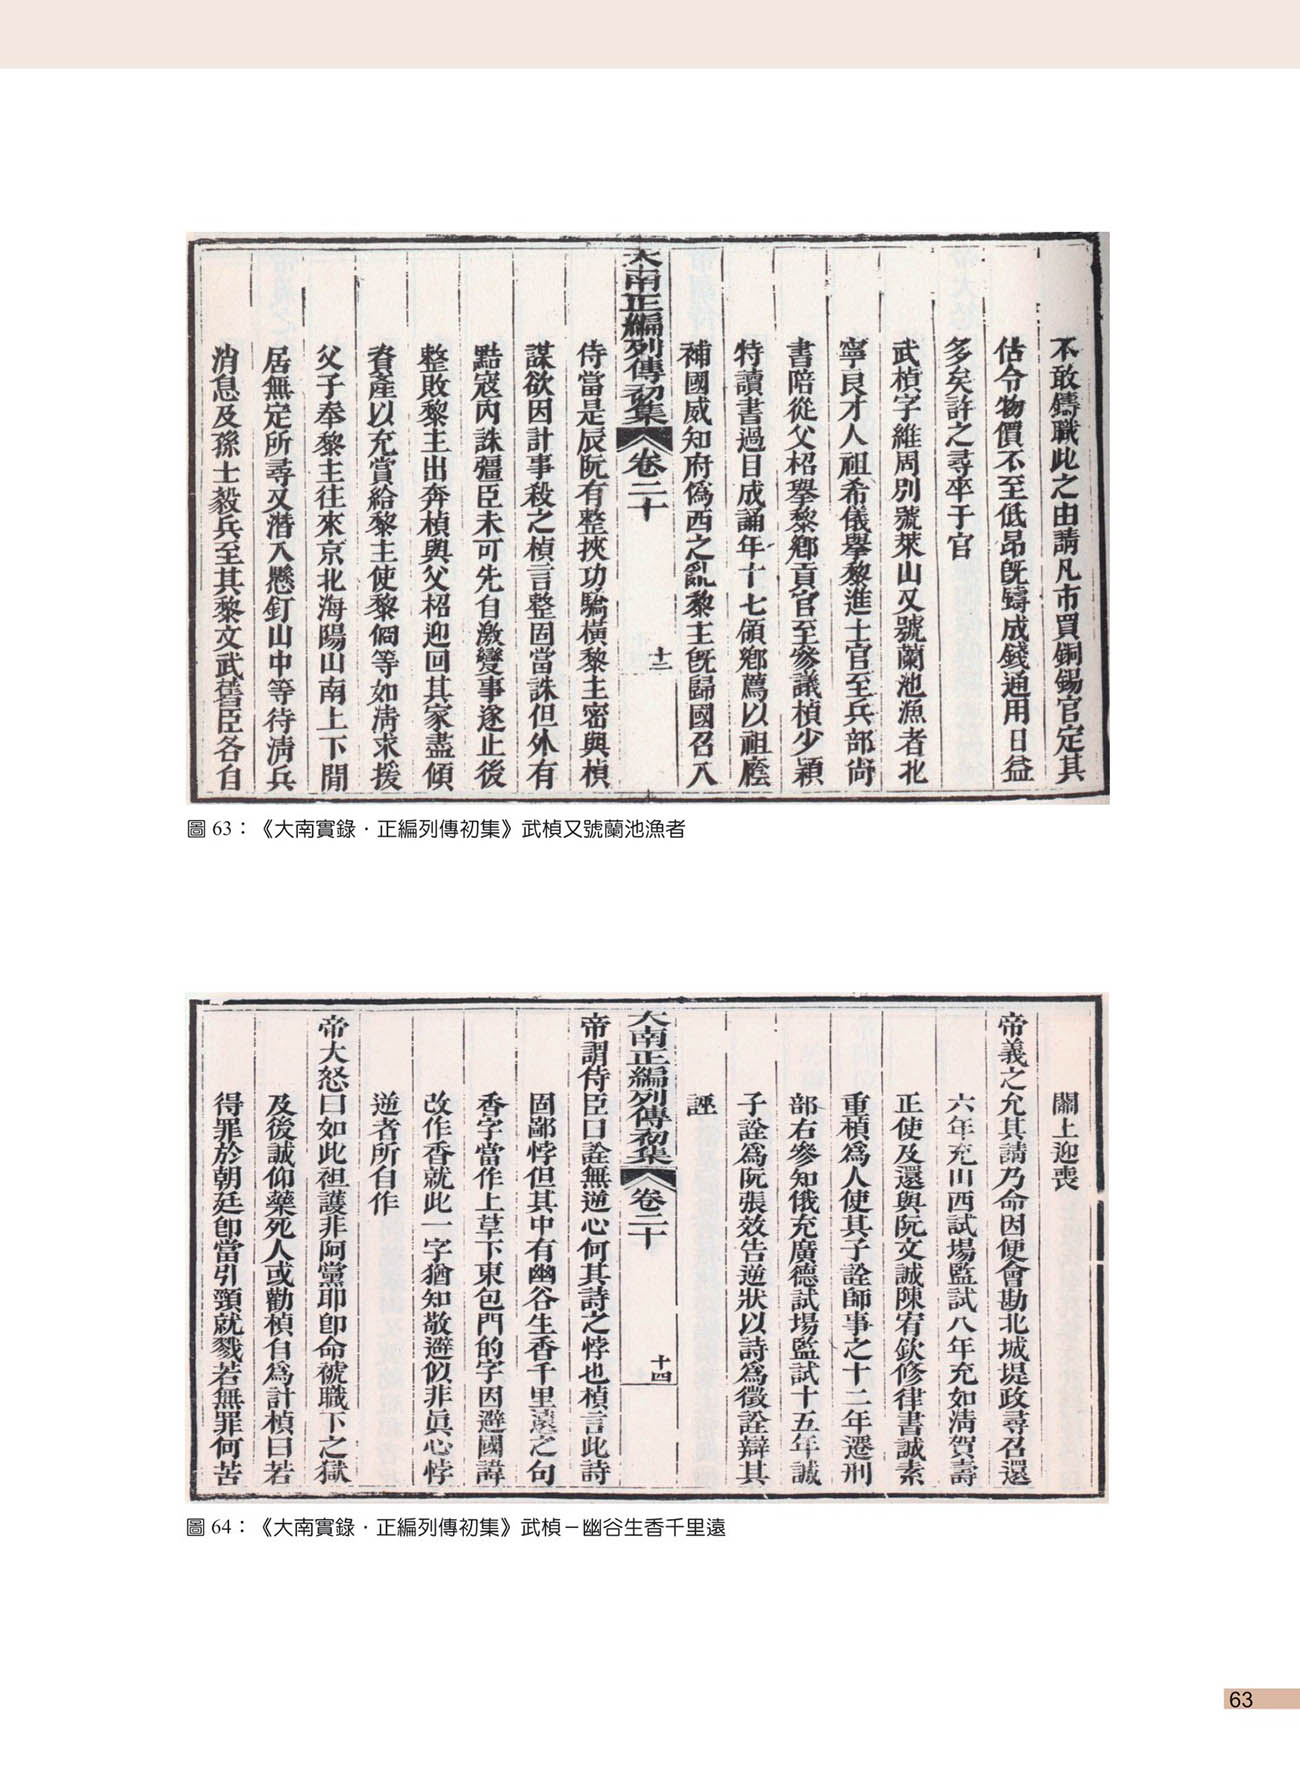 不敢鑄職此之由請凡市買銅錫官定其
估令物價不至低昂旣鑄成錢通用日益
多矣許之尋卒于官
武楨字維周別號萊山又號蘭池漁者北
寧良才人祖希儀擧黎進士官至兵部尙
書陪從父柖擧黎鄕貢官至參議楨少穎
特讀書過目成誦年十七領鄕薦以祖廕
補國威知府僞西之亂黎主旣歸國召入
大南正編列傳初集 卷二十 十二
侍當是辰阮有整挾功驕橫黎主密與楨
謀欲因計事殺之楨言整固當誅但外有
黠寇內誅彊臣未可先自激變事遂止後
整敗黎主出奔楨與父柖迎回其家盡傾
資產以充賞給黎主使黎侗等如淸求援
父子奉黎主往來京北海陽山南上下閒
居無定所尋又潛入懸釘山中等待淸兵
消息及孫士毅兵至其黎文武舊臣各自
圖 63：《大南實錄．正編列傳初集》武楨又號蘭池漁者
關上迎喪
帝義之允其請乃命因便會勘北城堤政尋召還
六年充山西試場監試八年充如淸賀壽
正使及還與阮文誠陳宥欽修律書誠素
重楨爲人使其子詮師事之十二年遷刑
部右參知俄充廣德試場監試十五年誠
子詮爲阮張效告逆狀以詩爲徵詮辯其
誣
大南正編列傳初集 卷二十 十四
帝謂侍臣曰詮無逆心何其詩之悖也楨言此詩
固鄙悖但其中有幽谷生香千里遠之句
香字當作上草下東包門的字因避國諱
改作香就此一字猶知敬避似非眞心悖
逆者所自作
帝大怒曰如此袒護非阿黨耶卽命褫職下之獄
及後誠仰藥死人或勸楨自爲計楨曰若
得罪於朝廷卽當引頸就戮若無罪何苦
圖 64：《大南實錄．正編列傳初集》武楨－幽谷生香千里遠
63